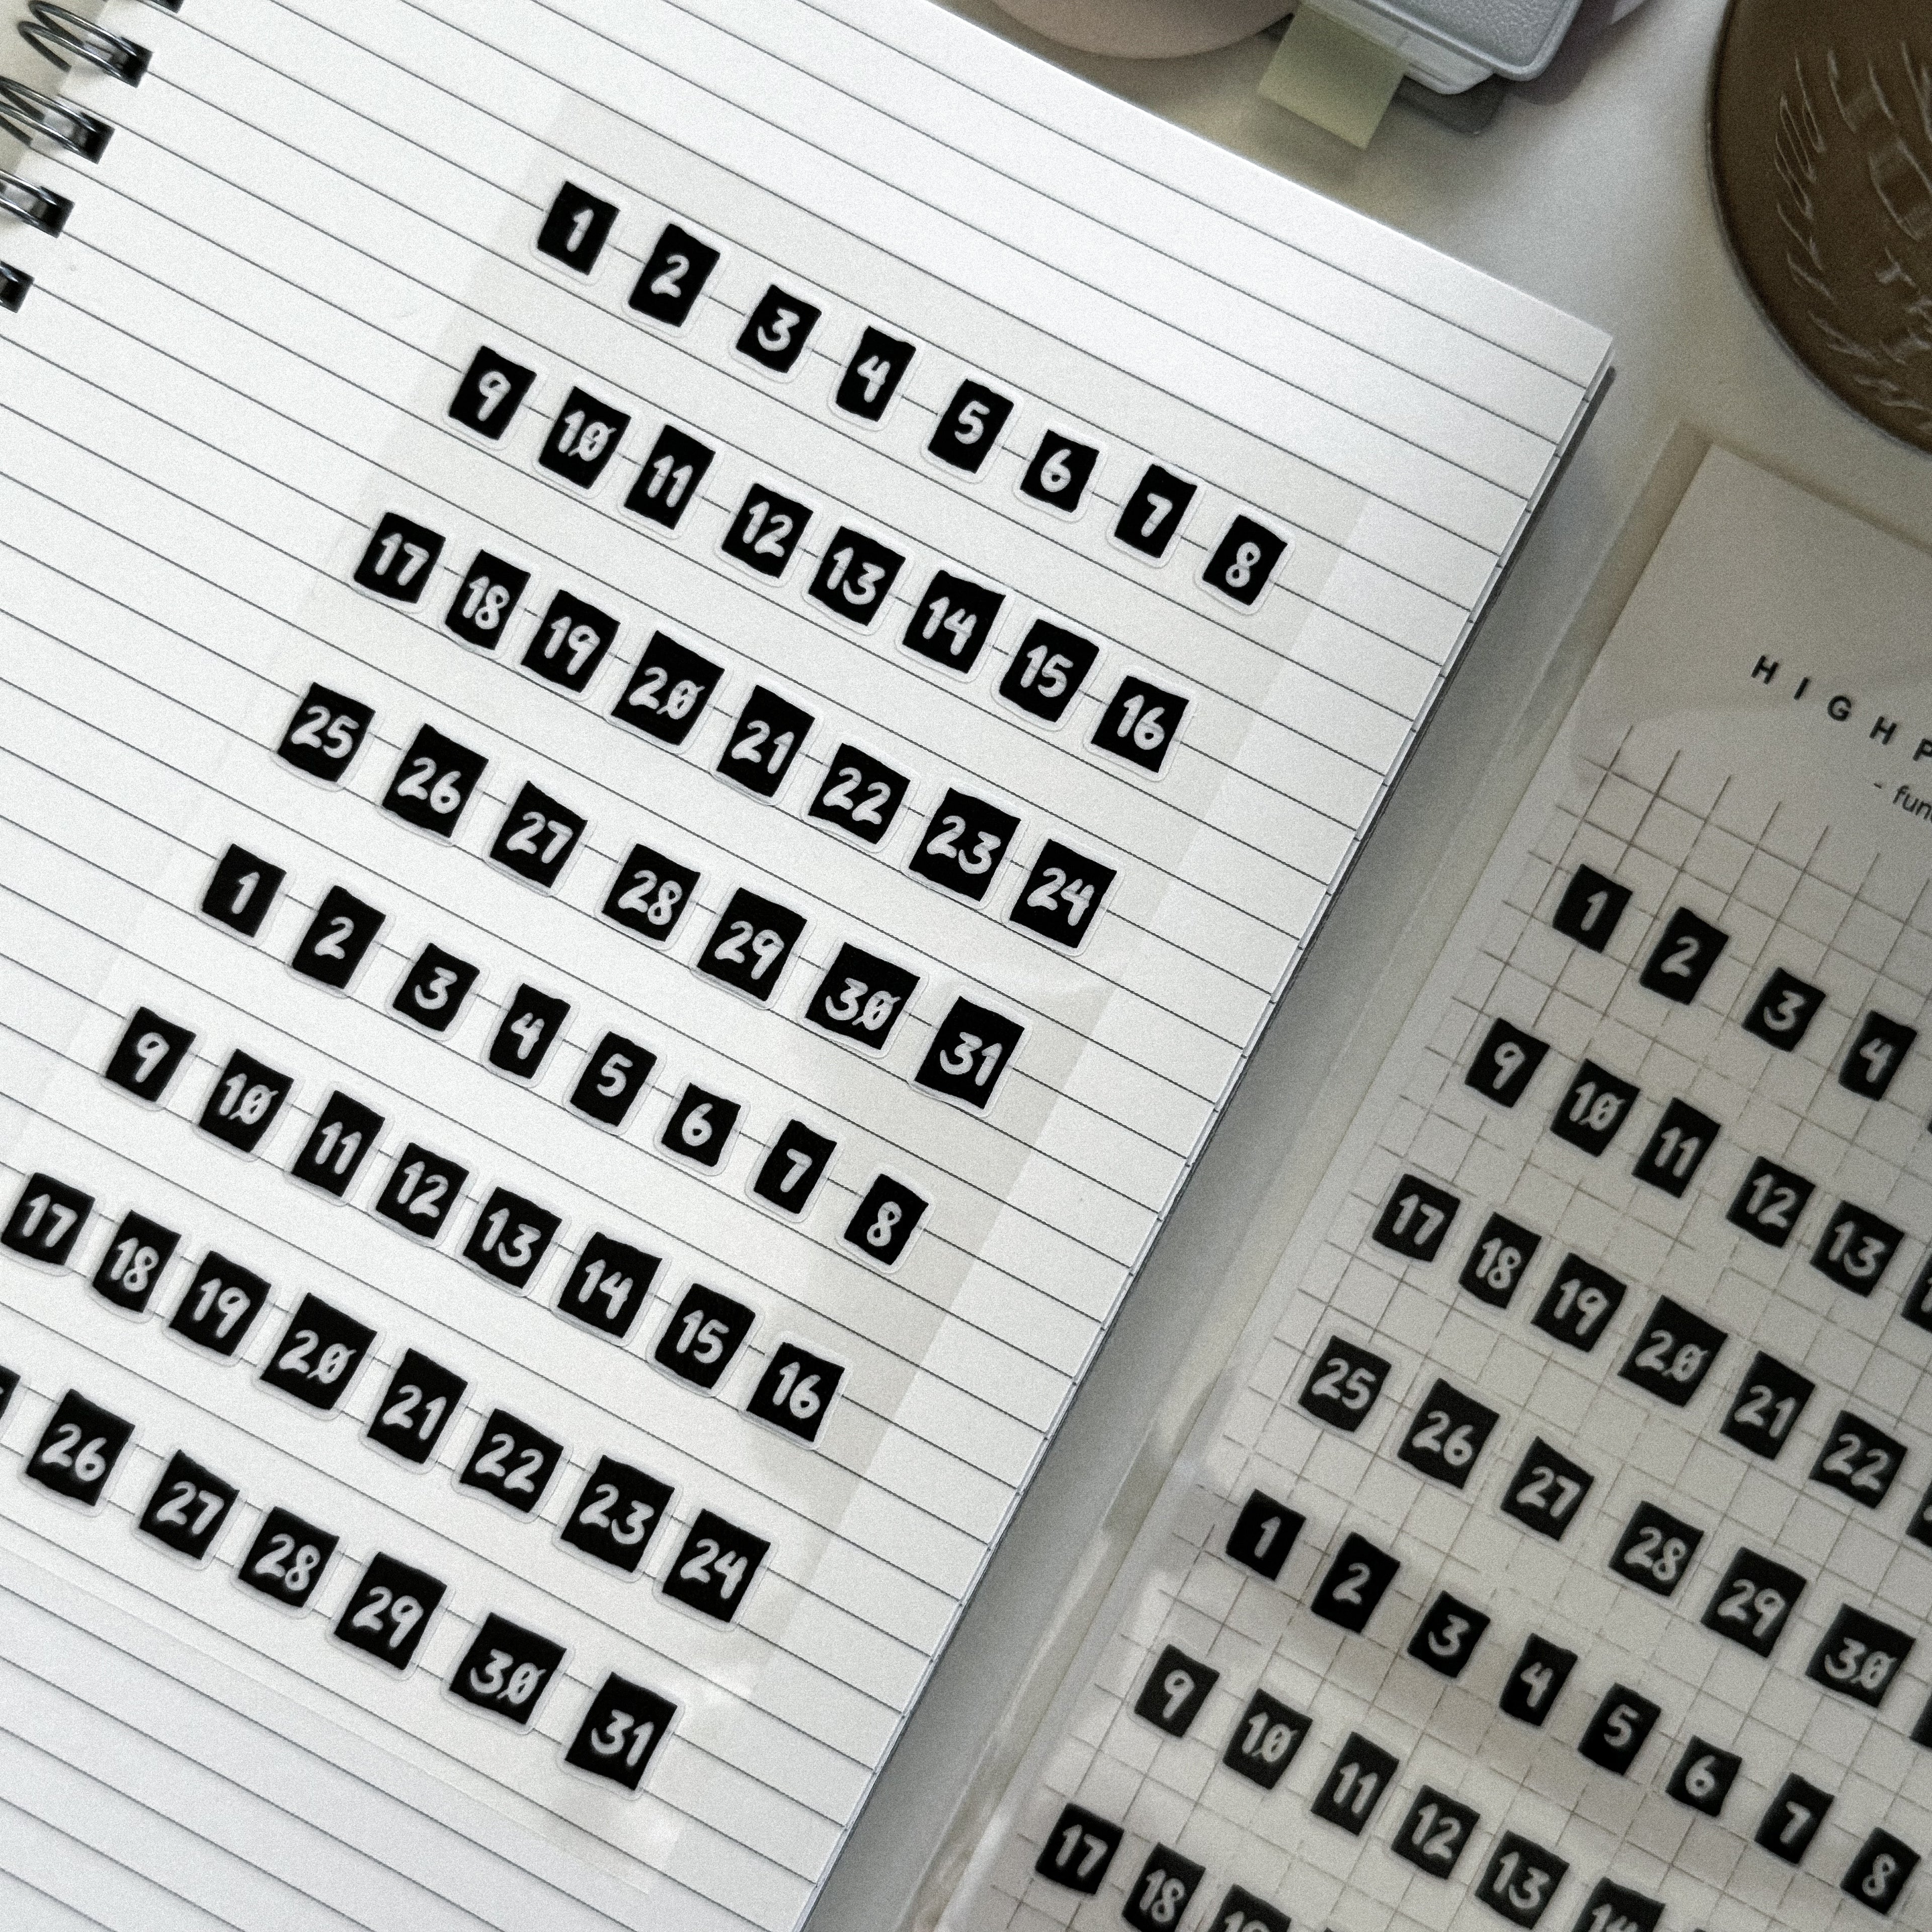 1 2 3 4 5 6 7 8
9 10 11 12 13 14 15 16
17 18 19 20 21 22 23 24
25 26 27 28 29 30 31
1 2 3 4 5 6 7 8
9 10 11 12 13 14 15 16
17 18 19 20 21 22 23 24
26 27 28 29 30 31
HIGH
1 2 3 4
9 10 11 12 13
17 18 19 20 21 22
25 26 27 28 29 30
1 2 3 4 5 6 7 8
9 10 11 12 13 14
17 18 19